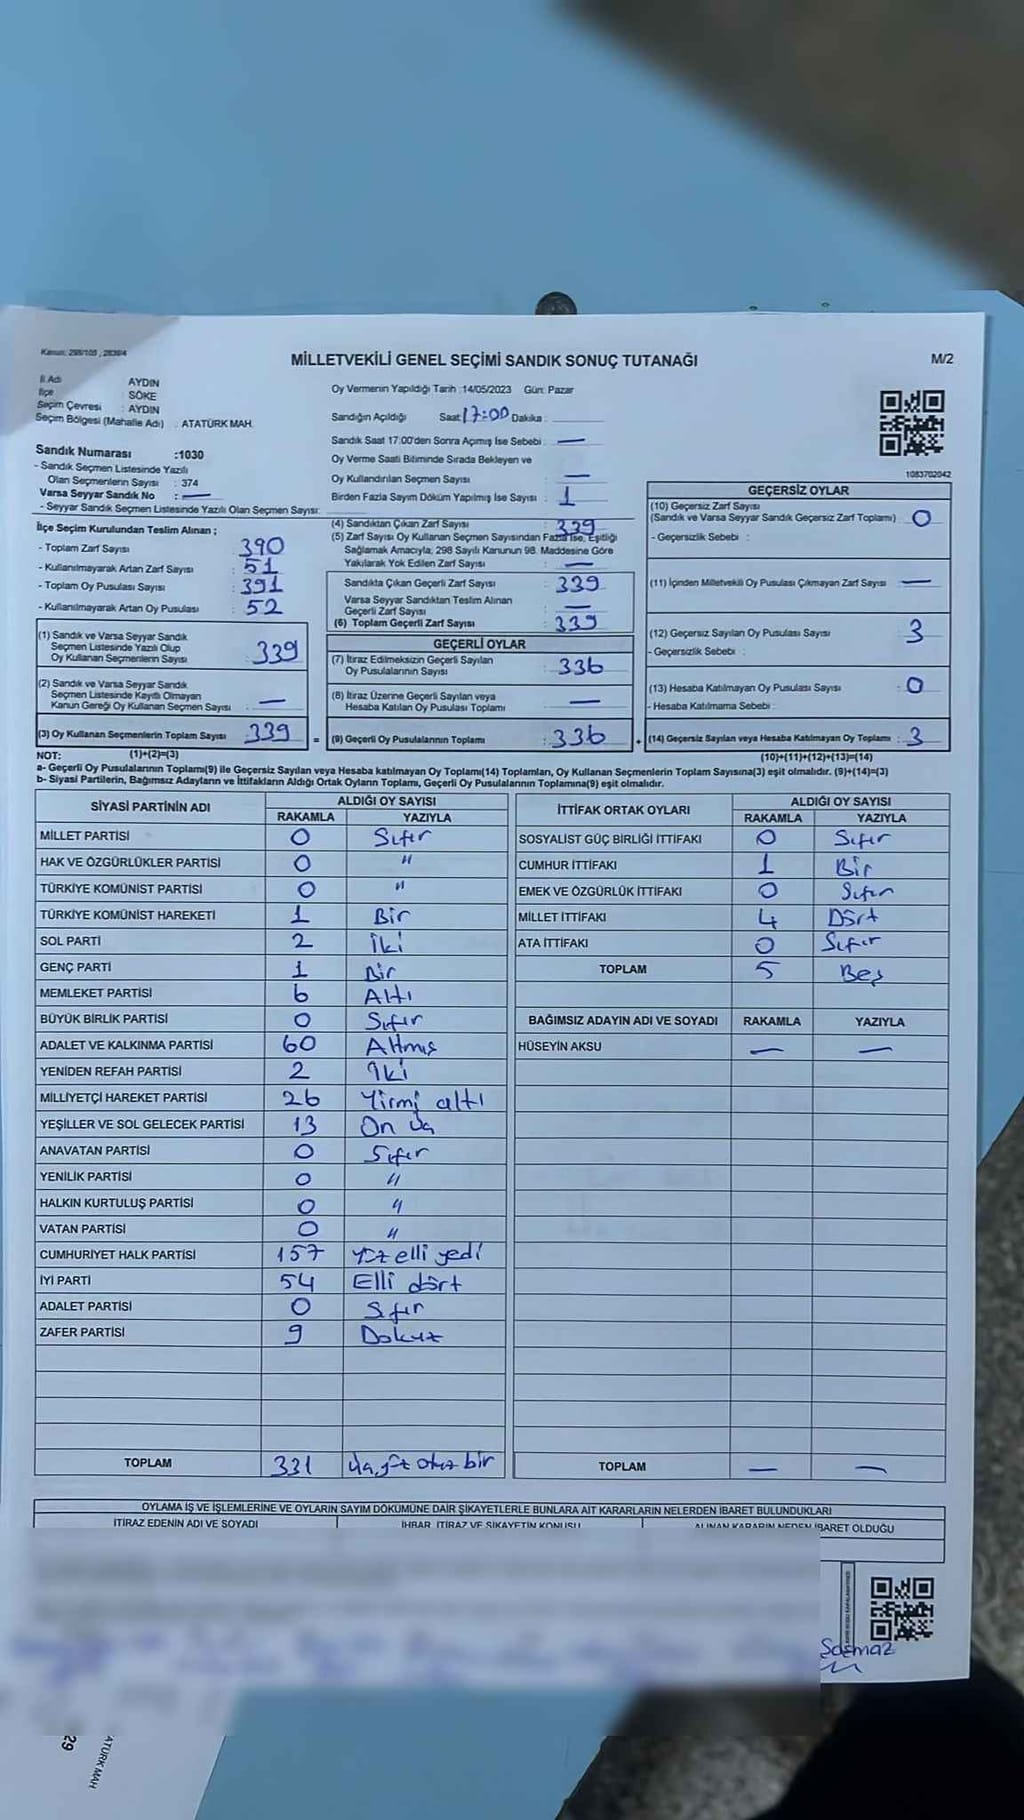 Kanun: 298/105 , 2839/4
MİLLETVEKİLİ GENEL SEÇİMİ SANDIK SONUÇ TUTANAĞI
M/2
İl Adı AYDIN
İlçe SÖKE
Seçim Çevresi : AYDIN
Seçim Bölgesi (Mahalle Adı) : ATATÜRK MAH.
Oy Vermenin Yapıldığı Tarih :14/05/2023 Gün: Pazar
Sandığın Açıldığı Saat 17:00 Dakika :
Sandık Saat 17:00'den Sonra Açımış İse Sebebi : —
Oy Verme Saati Bitiminde Sırada Bekleyen ve
Oy Kullandırılan Seçmen Sayısı : —
Birden Fazla Sayım Döküm Yapılmış İse Sayısı : 1
1083702042
Sandık Numarası :1030
- Sandık Seçmen Listesinde Yazılı
Olan Seçmenlerin Sayısı : 374
Varsa Seyyar Sandık No : —
- Seyyar Sandık Seçmen Listesinde Yazılı Olan Seçmen Sayısı:
İlçe Seçim Kurulundan Teslim Alınan ;
- Toplam Zarf Sayısı : 390
- Kullanılmayarak Artan Zarf Sayısı : 51
- Toplam Oy Pusulası Sayısı : 391
- Kullanılmayarak Artan Oy Pusulası : 52
(1) Sandık ve Varsa Seyyar Sandık
Seçmen Listesinde Yazılı Olup
Oy Kullanan Seçmenlerin Sayısı : 339
(2) Sandık ve Varsa Seyyar Sandık
Seçmen Listesinde Kayıtlı Olmayan
Kanun Gereği Oy Kullanan Seçmen Sayısı : —
(3) Oy Kullanan Seçmenlerin Toplam Sayısı : 339
(1)+(2)=(3)
(4) Sandıktan Çıkan Zarf Sayısı : 339
(5) Zarf Sayısı Oy Kullanan Seçmen Sayısından Fazla İse, Eşitliği
Sağlamak Amacıyla, 298 Sayılı Kanunun 98. Maddesine Göre
Yakılarak Yok Edilen Zarf Sayısı : —
Sandıkta Çıkan Geçerli Zarf Sayısı : 339
Varsa Seyyar Sandıktan Teslim Alınan
Geçerli Zarf Sayısı : —
(6) Toplam Geçerli Zarf Sayısı : 339
GEÇERLİ OYLAR
(7) İtiraz Edilmeksizin Geçerli Sayılan
Oy Pusulalarının Sayısı : 336
(8) İtiraz Üzerine Geçerli Sayılan veya
Hesaba Katılan Oy Pusulası Toplamı : —
= (9) Geçerli Oy Pusulalarının Toplamı : 336
GEÇERSİZ OYLAR
(10) Geçersiz Zarf Sayısı
(Sandık ve Varsa Seyyar Sandık Geçersiz Zarf Toplamı) : 0
- Geçersizlik Sebebi :
(11) İçinden Milletvekili Oy Pusulası Çıkmayan Zarf Sayısı : —
(12) Geçersiz Sayılan Oy Pusulası Sayısı : 3
- Geçersizlik Sebebi :
(13) Hesaba Katılmayan Oy Pusulası Sayısı : 0
- Hesaba Katılmama Sebebi :
+ (14) Geçersiz Sayılan veya Hesaba Katılmayan Oy Toplamı : 3
(10)+(11)+(12)+(13)=(14)
NOT:
a- Geçerli Oy Pusulalarının Toplamı(9) ile Geçersiz Sayılan veya Hesaba katılmayan Oy Toplamı(14) Toplamları, Oy Kullanan Seçmenlerin Toplam Sayısına(3) eşit olmalıdır. (9)+(14)=(3)
b- Siyasi Partilerin, Bağımsız Adayların ve İttifakların Aldığı Ortak Oyların Toplamı, Geçerli Oy Pusulalarının Toplamına(9) eşit olmalıdır.
SİYASİ PARTİNİN ADI ALDIĞI OY SAYISI
RAKAMLA YAZIYLA
MİLLET PARTİSİ 0 Sıfır
HAK VE ÖZGÜRLÜKLER PARTİSİ 0 "
TÜRKİYE KOMÜNİST PARTİSİ 0 "
TÜRKİYE KOMÜNİST HAREKETİ 1 Bir
SOL PARTİ 2 İki
GENÇ PARTİ 1 Bir
MEMLEKET PARTİSİ 6 Altı
BÜYÜK BİRLİK PARTİSİ 0 Sıfır
ADALET VE KALKINMA PARTİSİ 60 Altmış
YENİDEN REFAH PARTİSİ 2 İki
MİLLİYETÇİ HAREKET PARTİSİ 26 Yirmi altı
YEŞİLLER VE SOL GELECEK PARTİSİ 13 On üç
ANAVATAN PARTİSİ 0 Sıfır
YENİLİK PARTİSİ 0 "
HALKIN KURTULUŞ PARTİSİ 0 "
VATAN PARTİSİ 0 "
CUMHURİYET HALK PARTİSİ 157 Yüz elli yedi
İYİ PARTİ 54 Elli dört
ADALET PARTİSİ 0 Sıfır
ZAFER PARTİSİ 9 Dokuz
TOPLAM 331 Üçyüz otuz bir
İTTİFAK ORTAK OYLARI ALDIĞI OY SAYISI
RAKAMLA YAZIYLA
SOSYALİST GÜÇ BİRLİĞİ İTTİFAKI 0 Sıfır
CUMHUR İTTİFAKI 1 Bir
EMEK VE ÖZGÜRLÜK İTTİFAKI 0 Sıfır
MİLLET İTTİFAKI 4 Dört
ATA İTTİFAKI 0 Sıfır
TOPLAM 5 Beş
BAĞIMSIZ ADAYIN ADI VE SOYADI RAKAMLA YAZIYLA
HÜSEYİN AKSU — —
TOPLAM — —
OYLAMA İŞ VE İŞLEMLERİNE VE OYLARIN SAYIM DÖKÜMÜNE DAİR ŞİKAYETLERLE BUNLARA AİT KARARLARIN NELERDEN İBARET BULUNDUKLARI
İTİRAZ EDENİN ADI VE SOYADI İHBAR, İTİRAZ VE ŞİKAYETİN KONUSU ALINAN KARARIN NEDEN İBARET OLDUĞU
29